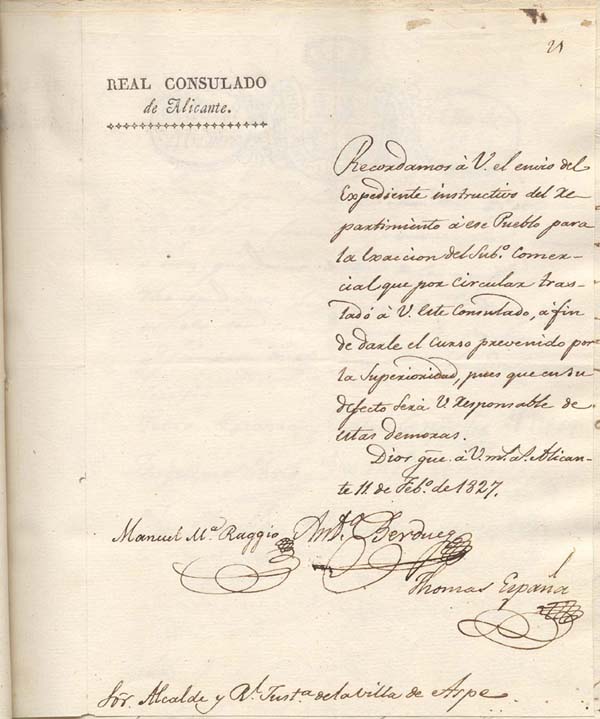 21
REAL CONSULADO
de Alicante.
Recordamos à V. el envio del
Expediente instructivo del re
partimiento à ese Pueblo para
la exaccion del Sub.º Comer-
cial que por circular tras-
ladó à V. este Consulado, à fin
de darle el curso prevenido por
la Superioridad, pues que en su
defecto será V. responsable de
estas demoras.
Dios gue. à V. m.s a.s Alican-
te 11. de Feb.º de 1827.
Manuel M.ª Raggio
Ant.º Berdueg
Thomas España
Sor. Alcalde y R.l Just.a de la villa de Aspe.